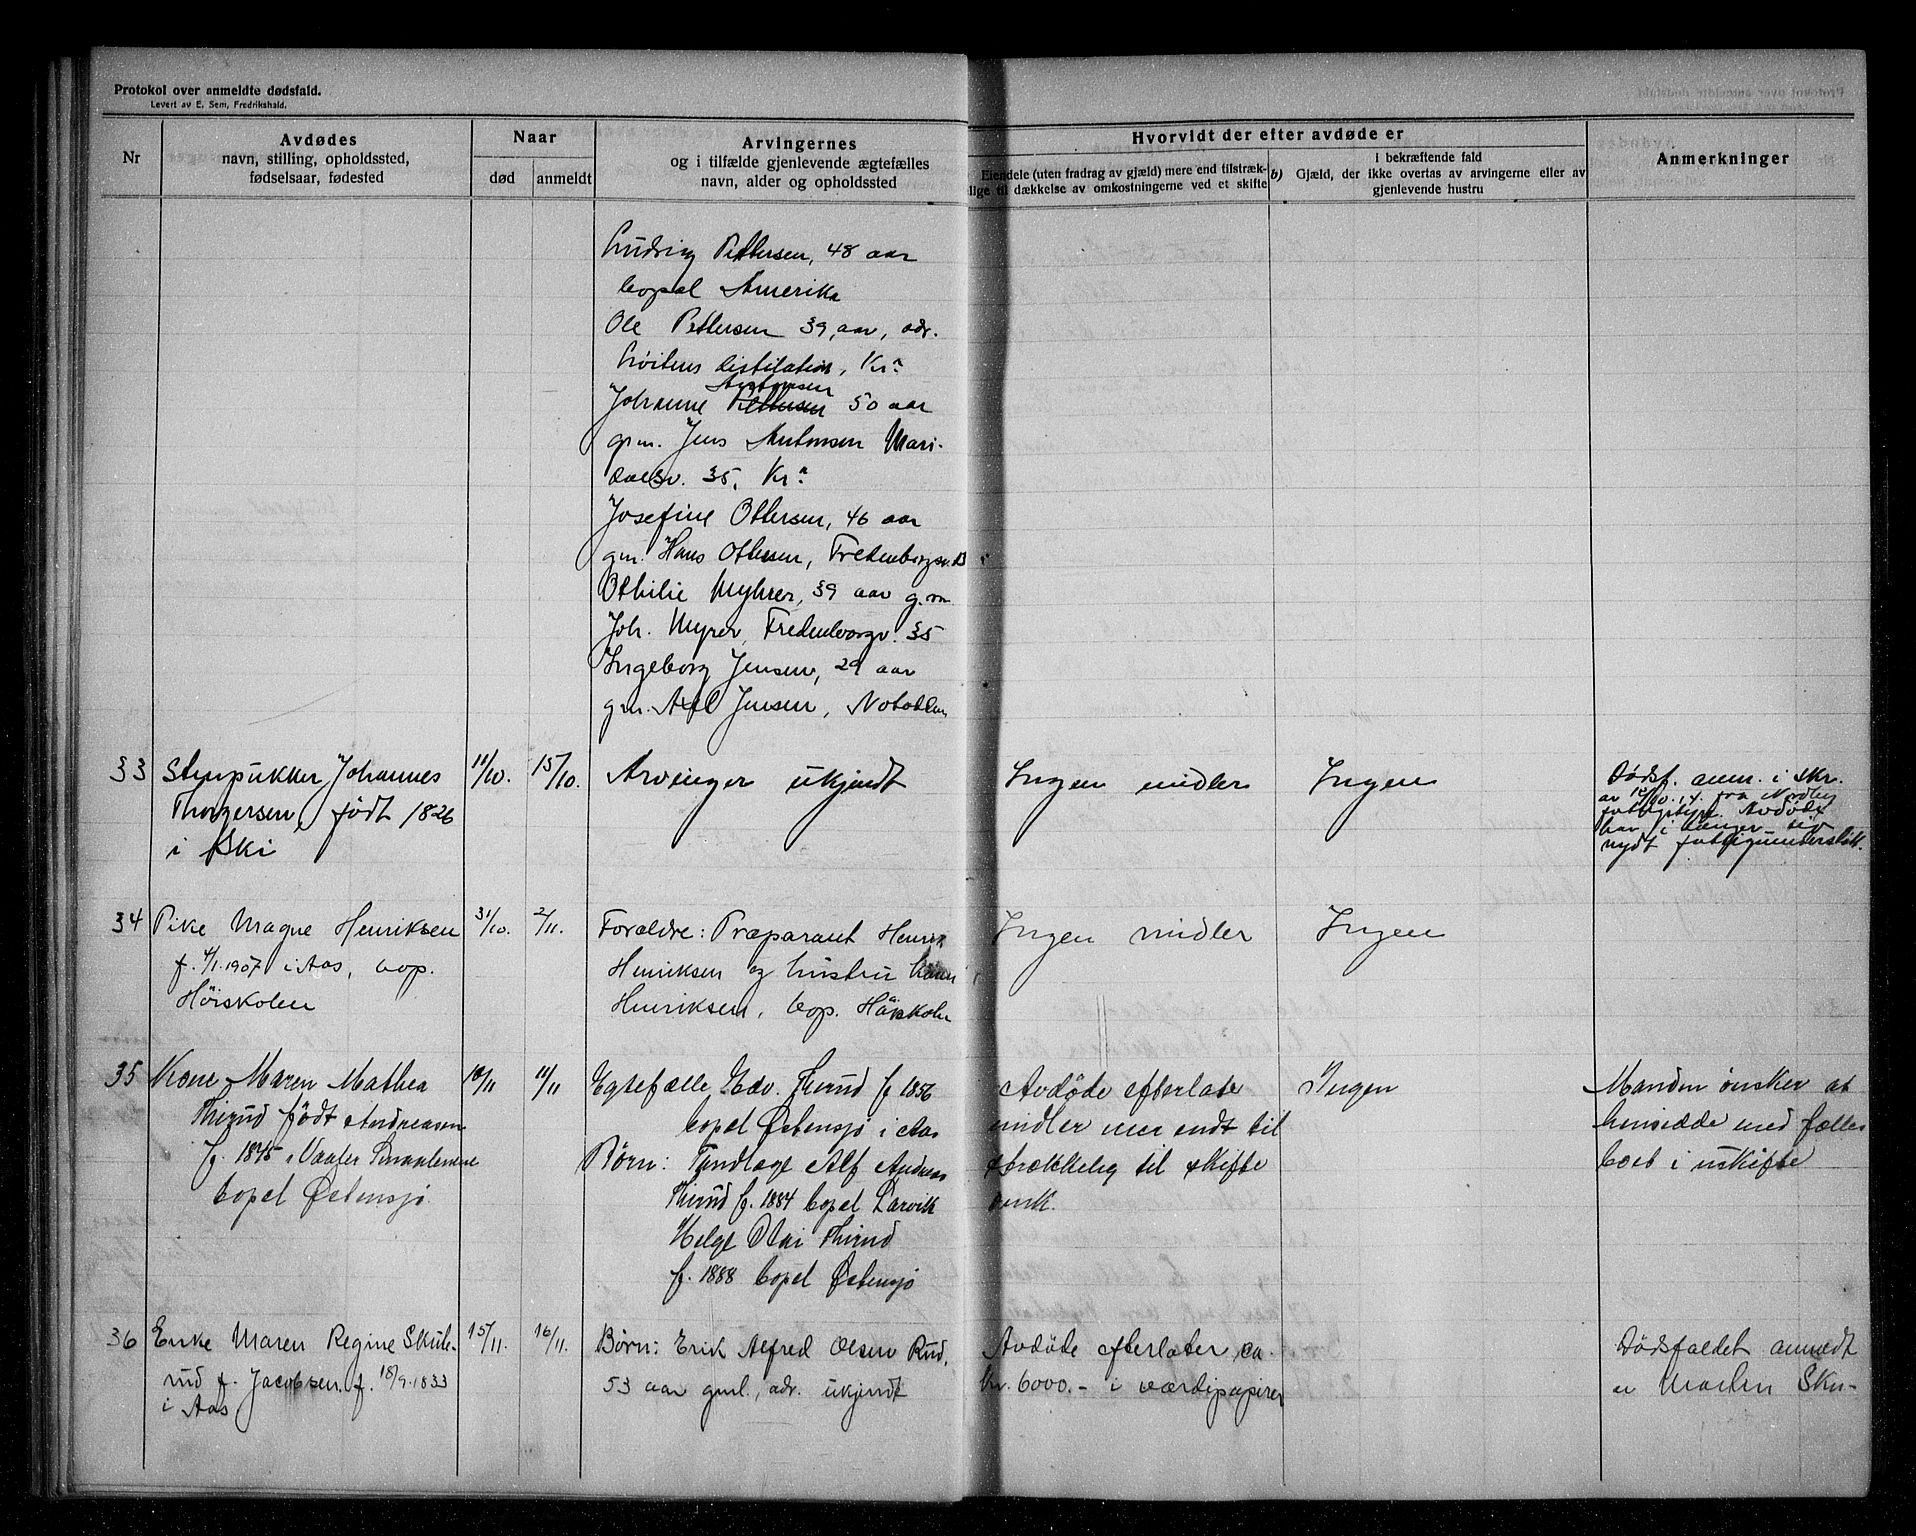 Protokol over anmeldte dødsfald.
Levert av E. Sem, Fredrikshald.
Nr
Avdødes
navn, stilling, opholdssted,
fødselsaar, fødested
Naar
død
anmeldt
Arvingernes
og i tilfælde gjenlevende ægtefælles
navn, alder og opholdssted
Hvorvidt der efter avdøde er
Eiendele (uten fradrag av gjæld) mere end tilstræk-
lige til dækkelse av omkostningerne ved et skifte
b)
i bekræftende fald
Gjæld, der ikke overtas av arvingerne eller av
gjenlevende hustru
Anmerkninger
Ludvig Pettersen, 48 aar
bopæl Amerika
Ole Pettersen 39, aar, adr.
Løitens distilation, Kra
Antonsen
Johanne Pettersen 50 aar
gm. Jens Antonsen Mari-
dalsv. 35, Kra
Josefine Ottersen, 46 aar
gm. Hans Ottersen, Fredenborgsv.
Othilie Myhrer, 39 aar g.m
Joh. Myrer, Fredenborgv. 35
Ingeborg Jensen, 29 aar
gm. Axel Jensen, Notodden
33
Stenpukker Johannes
Thorgersen, født 1826
i Ski
11/10.
15/10.
Arvinger ukjendt
Ingen midler
Ingen
Dødsf. anm. i skr.
av 12/10.14. fra Nordby
fattigstyr. Avdøde
har i længer tid
nydt fattigunderstøtt.
34
Pike Magne Henriksen
f. 4/1.1907 i Aas, bop.
Höiskolen
31/10.
2/11.
Forældre: Præparant Henrik
Henriksen og hustru
Henriksen, bop. Höiskolen
Ingen midler
Ingen
35
Kone Maren Mathea
Thirud født Andreasen
f. 1845 i Vaaler Smaalenene
bopel Østensjø
10/11
11/11
Egtefælle Edv. Thirud f 1856
bopel Østensjø i Aas
Børn: Tandlæge Alf Andreas
Thirud f. 1884 bopel Larvik
Helge Thirud
f. 1888 bopel Østensjø
Avdøde efterlater
midler mer endt til
strækkelig til skifte
omk.
Ingen
Manden ønsker at
hensidde med fælles
boet i uskifte
36
Enke Maren Regine Skule-
rud f. Jacobsen f. 18/9.1833
i Aas
15/11.
16/11.
Børn: Erik Alfred Olsen Rud,
53 aar gml., adr. ukjendt
Avdøde efterlater ca.
kr. 6000.- i værdipapirer
Dødsfaldet anmeldt
av Marten Sku-